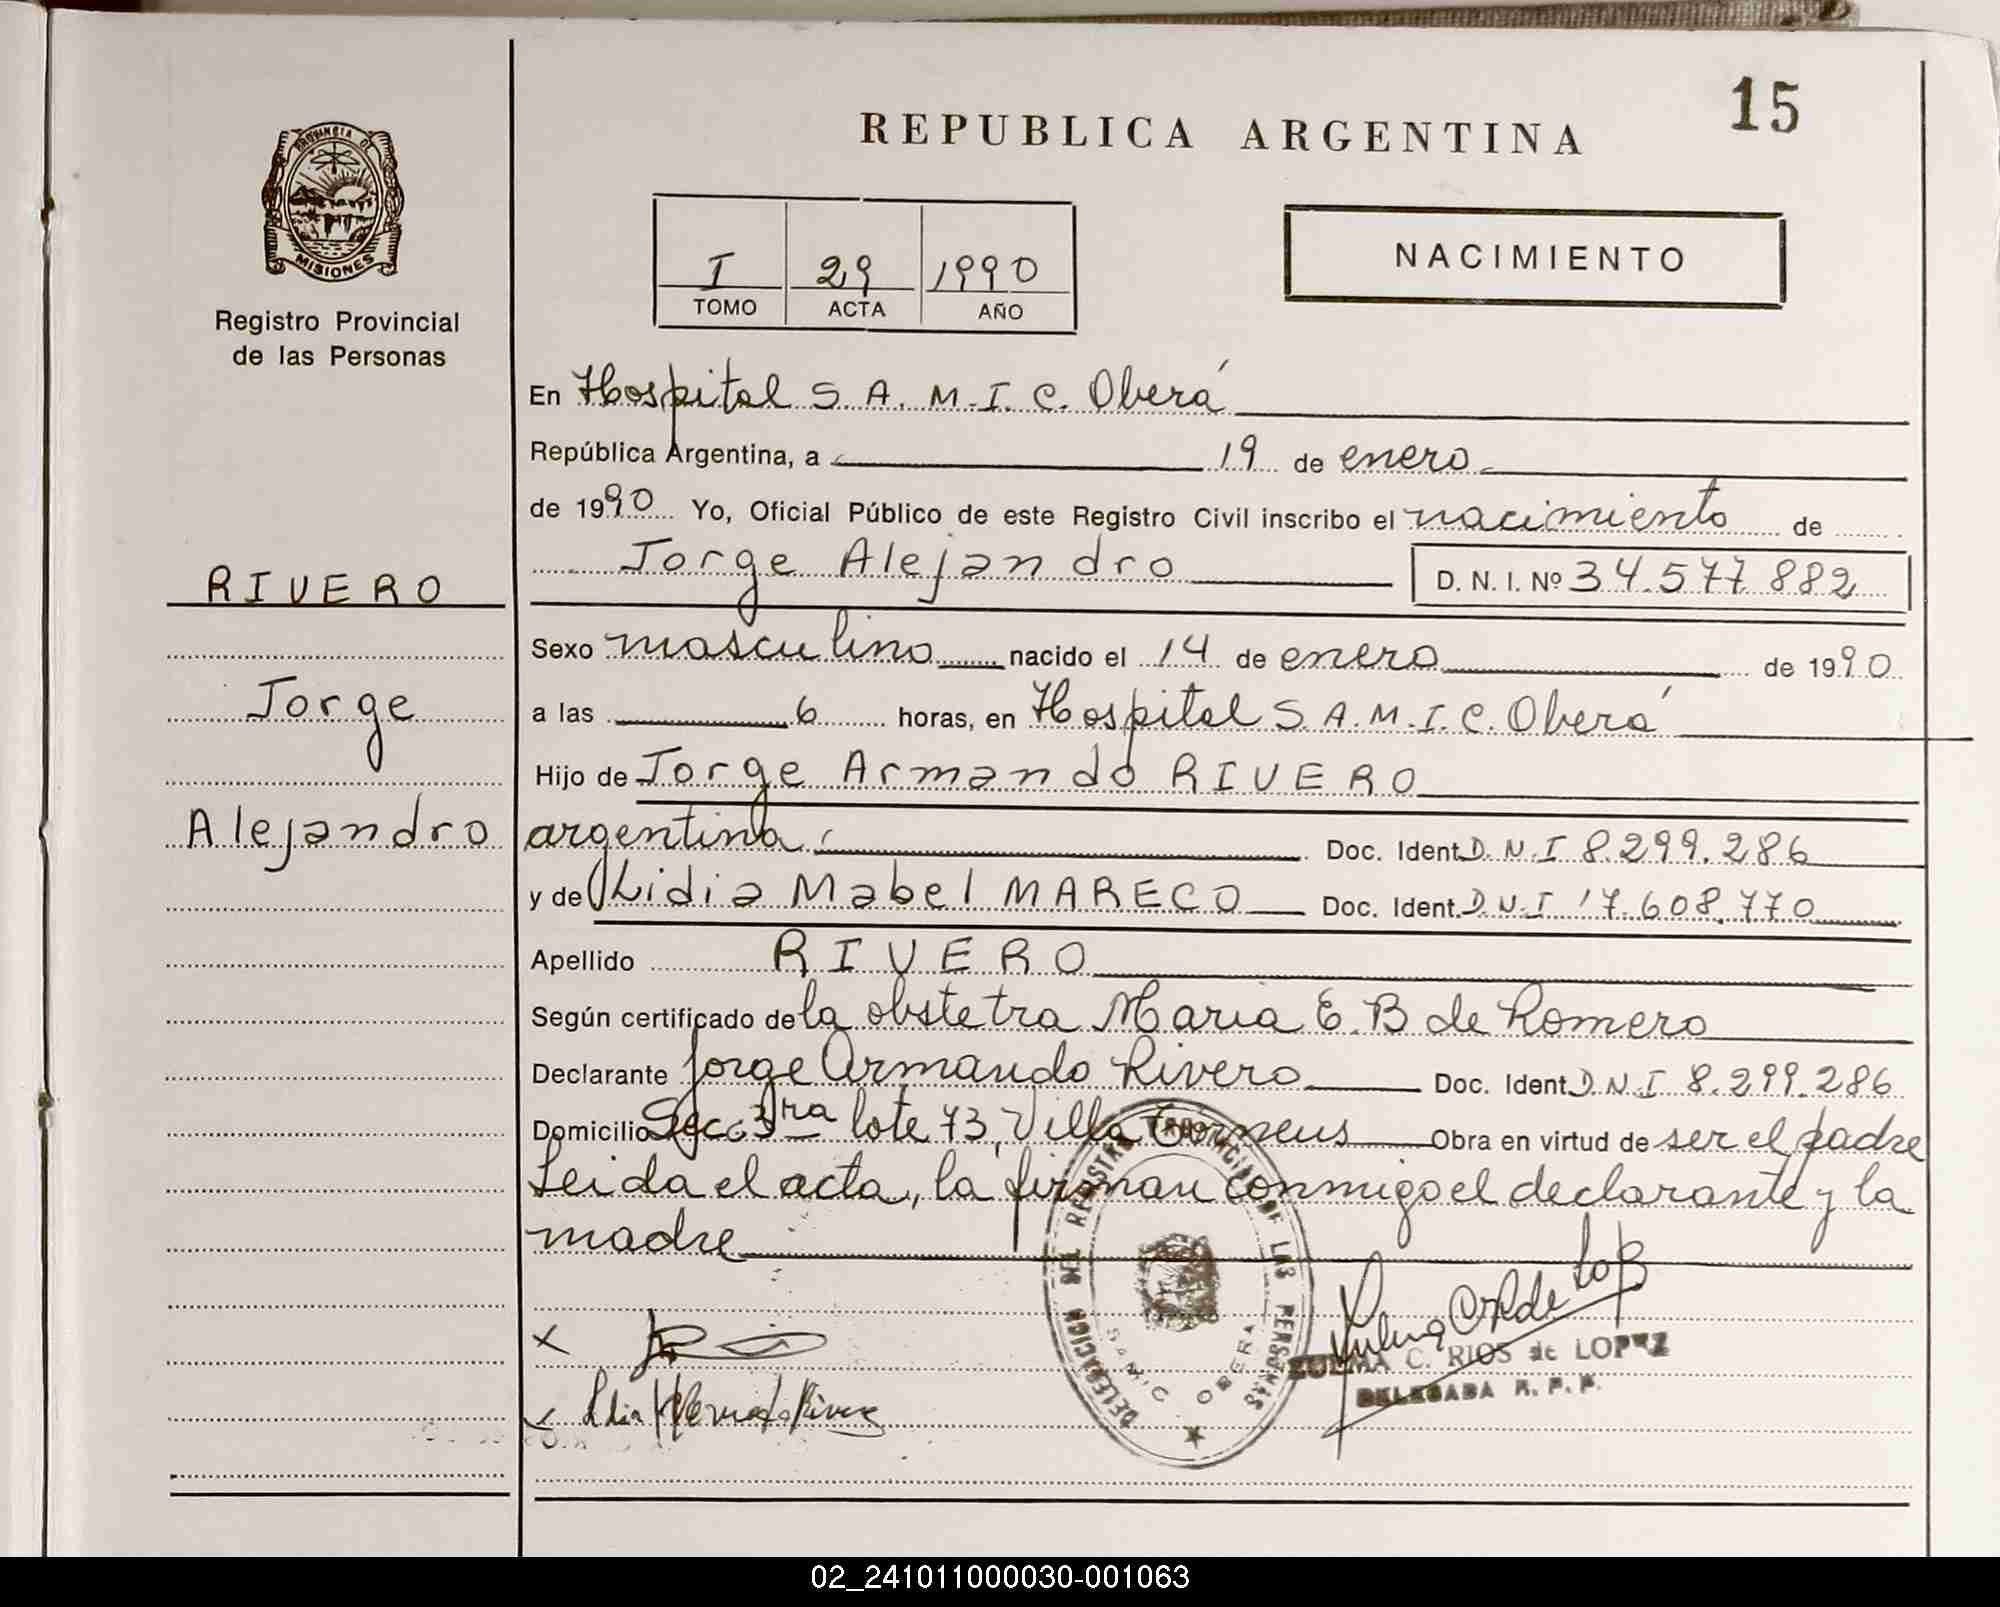 REPUBLICA ARGENTINA
15
PROVINCIA DE
MISIONES
Registro Provincial
de las Personas
I 29 1990
TOMO ACTA AÑO
NACIMIENTO
En Hospital S.A.M.I.C. Oberá
República Argentina, a 19 de enero
de 1990 Yo, Oficial Público de este Registro Civil inscribo el nacimiento de
RIVERO
Jorge Alejandro D. N. I. Nº 34.577.882
Sexo masculino nacido el 14 de enero de 1990
Jorge
a las 6 horas, en Hospital S.A.M.I.C. Oberá
Hijo de Jorge Armando RIVERO
Alejandro
argentina Doc. Ident. D.N.I 8.299.286
y de Lidia Mabel MARECO Doc. Ident. D.N.I 17.608.770
Apellido RIVERO
Según certificado de la obstetra Maria E. B de Romero
Declarante Jorge Armando Rivero Doc. Ident. D.N.I 8.299.286
Domicilio Secc. 3ra lote 73, Villa Obra en virtud de ser el padre
Leida el acta, la firman conmigo el declarante y la
madre
DELEGACION DEL REGISTRO PROVINCIAL DE LAS PERSONAS
SAMIC OBERA
X
ZULMA C. RIOS de LOPEZ
DELEGADA R. P. P.
02_241011000030-001063